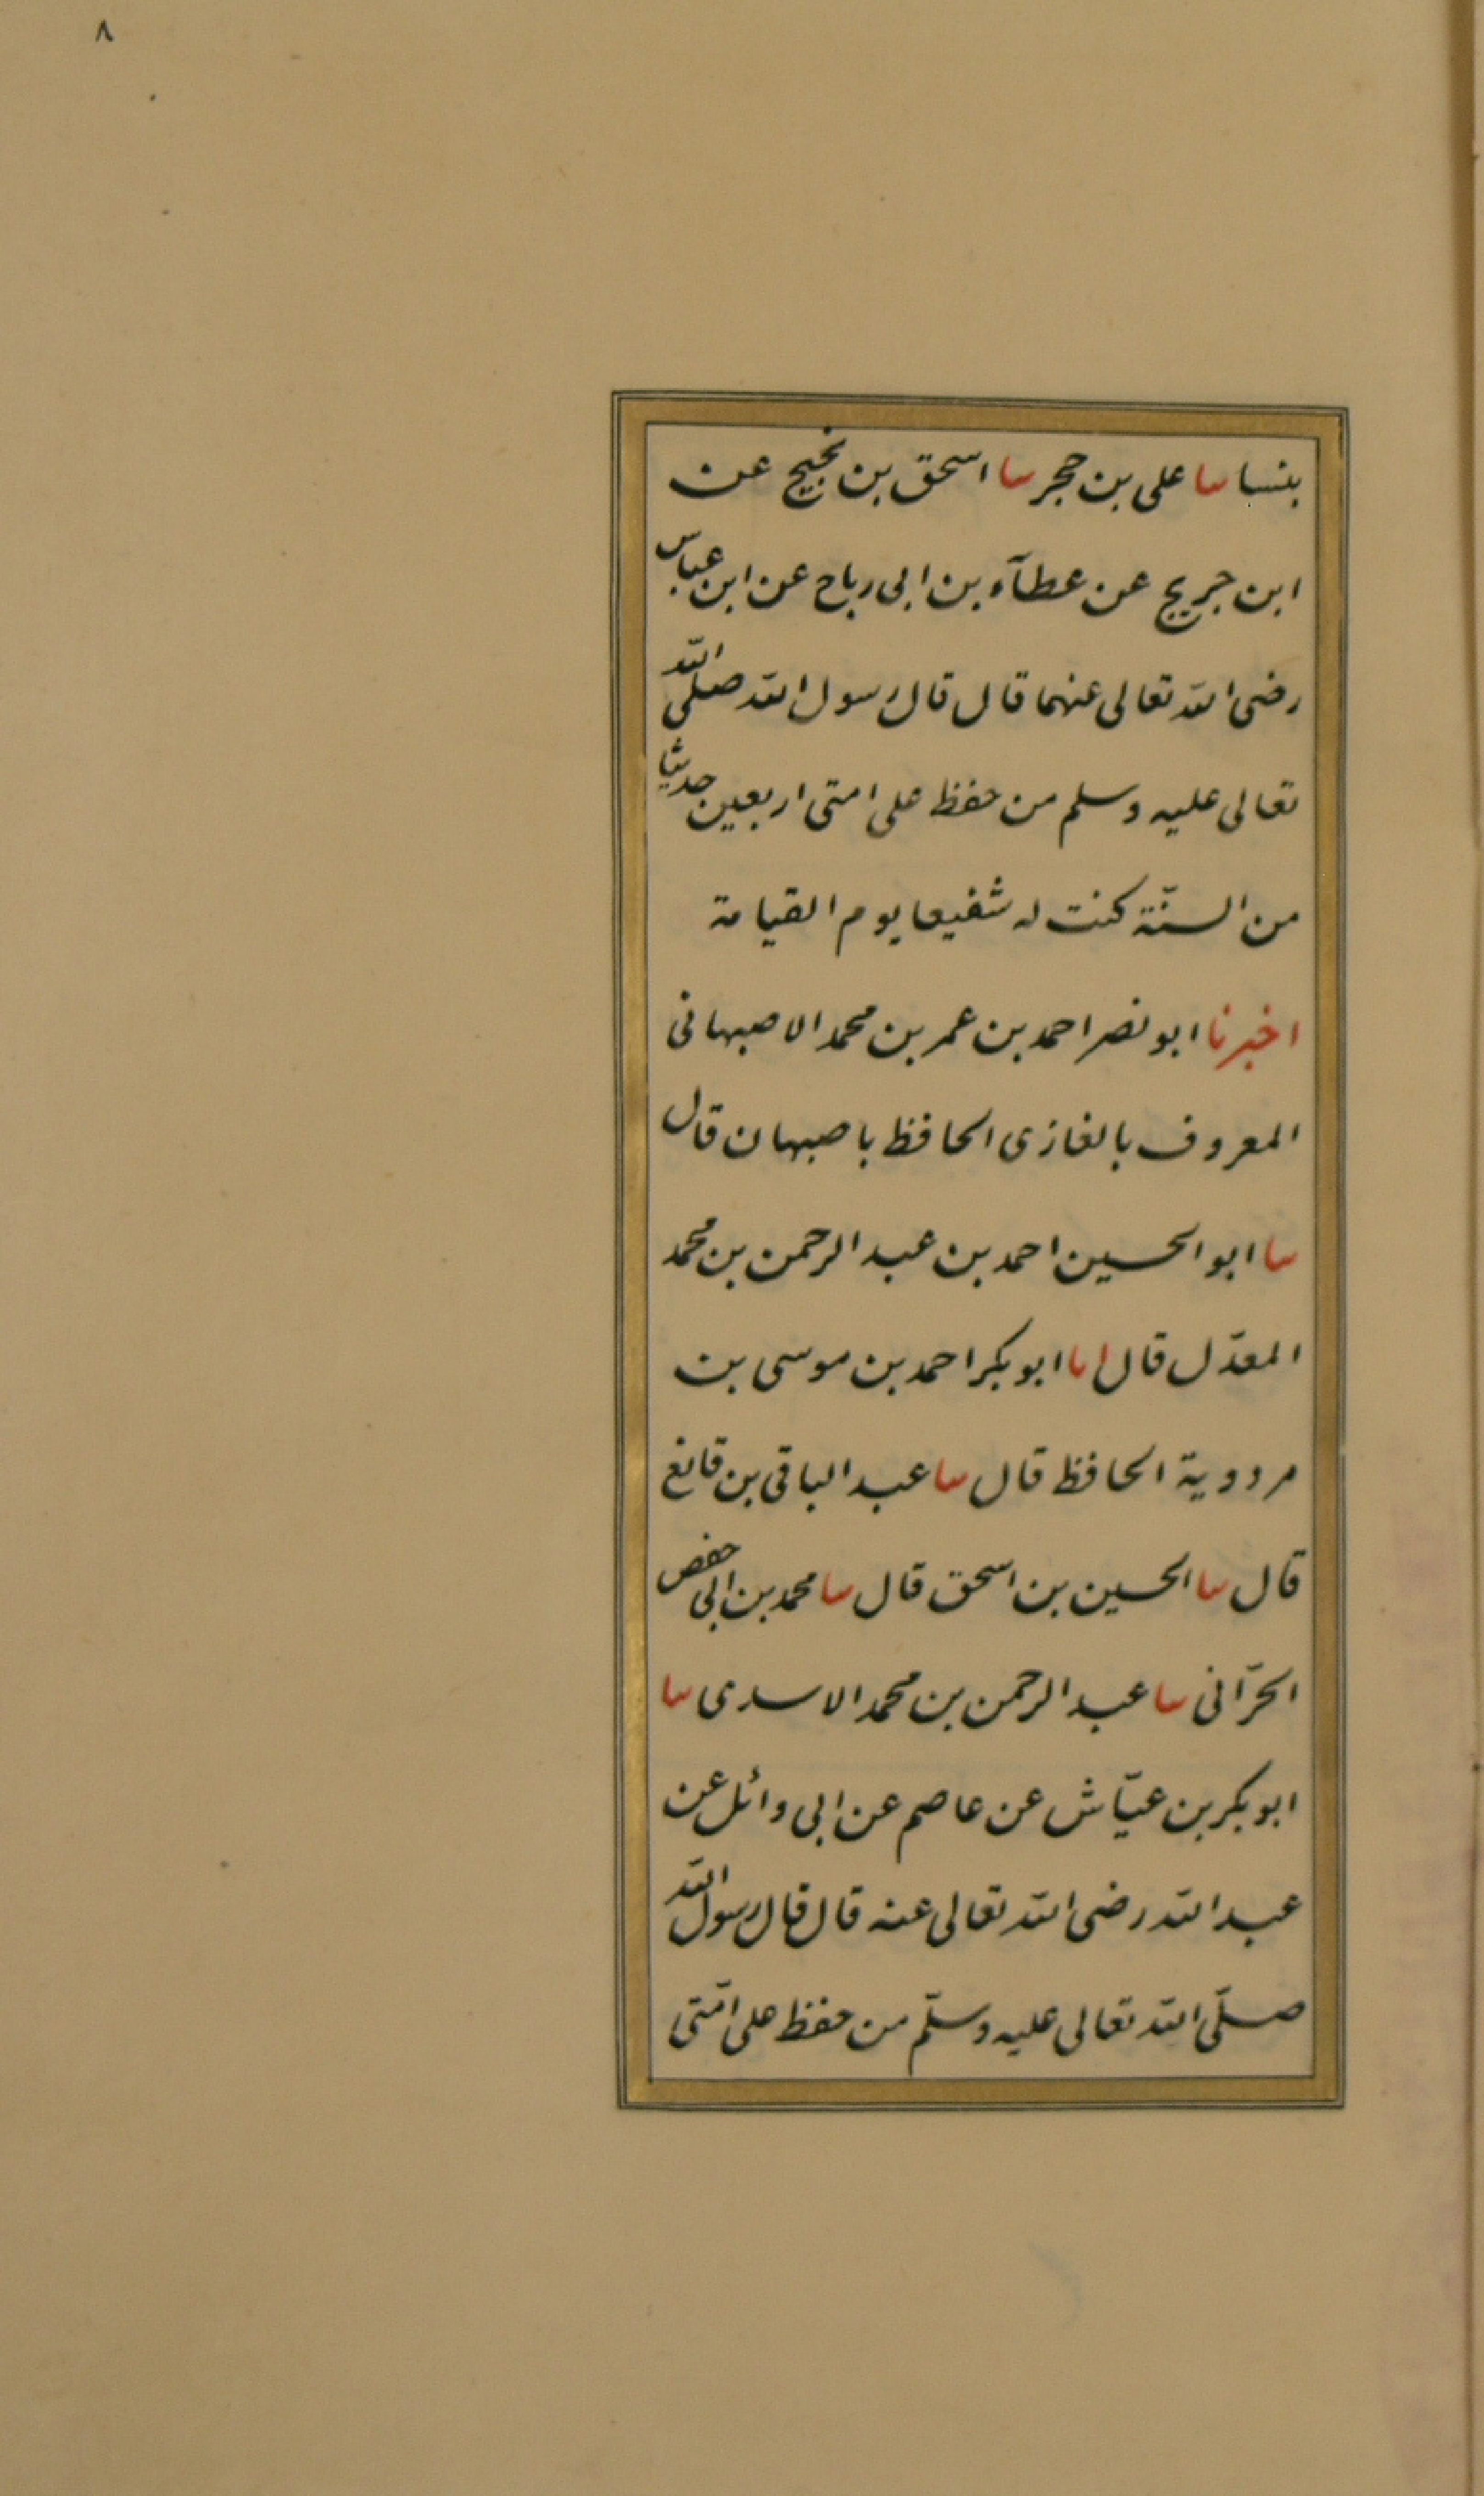 ٨
بنسا سا على بن حجر سا اسحق بن نجيح عن
ابن جريج عن عطآء بن ابى رباح عن ابن عباس
رضى الله تعالى عنهما قال قال رسول الله صلى الله
تعالى عليه وسلم من حفظ على امتى اربعين حديثا
من السنّة كنت له شفيعا يوم القيامة
اخبرنا ابو نصر احمد بن عمر بن محمد الاصبهانى
المعروف بالغازى الحافظ باصبهان قال
سا ابو الحسين احمد بن عبد الرحمن بن محمد
المعدّل قال اىا ابو بكر احمد بن موسى بن
مردوية الحافظ قال سا عبد الباقى بن قانع
قال سا الحسين بن اسحق قال سا محمد بن ابى حفص
الحرّانى سا عبد الرحمن بن محمد الاسدى سا
ابو بكر بن عيّاش عن عاصم عن ابى وائل عن
عبد الله رضى الله تعالى عنه قال قال رسول الله
صلّى الله تعالى عليه وسلّم من حفظ على امّتى